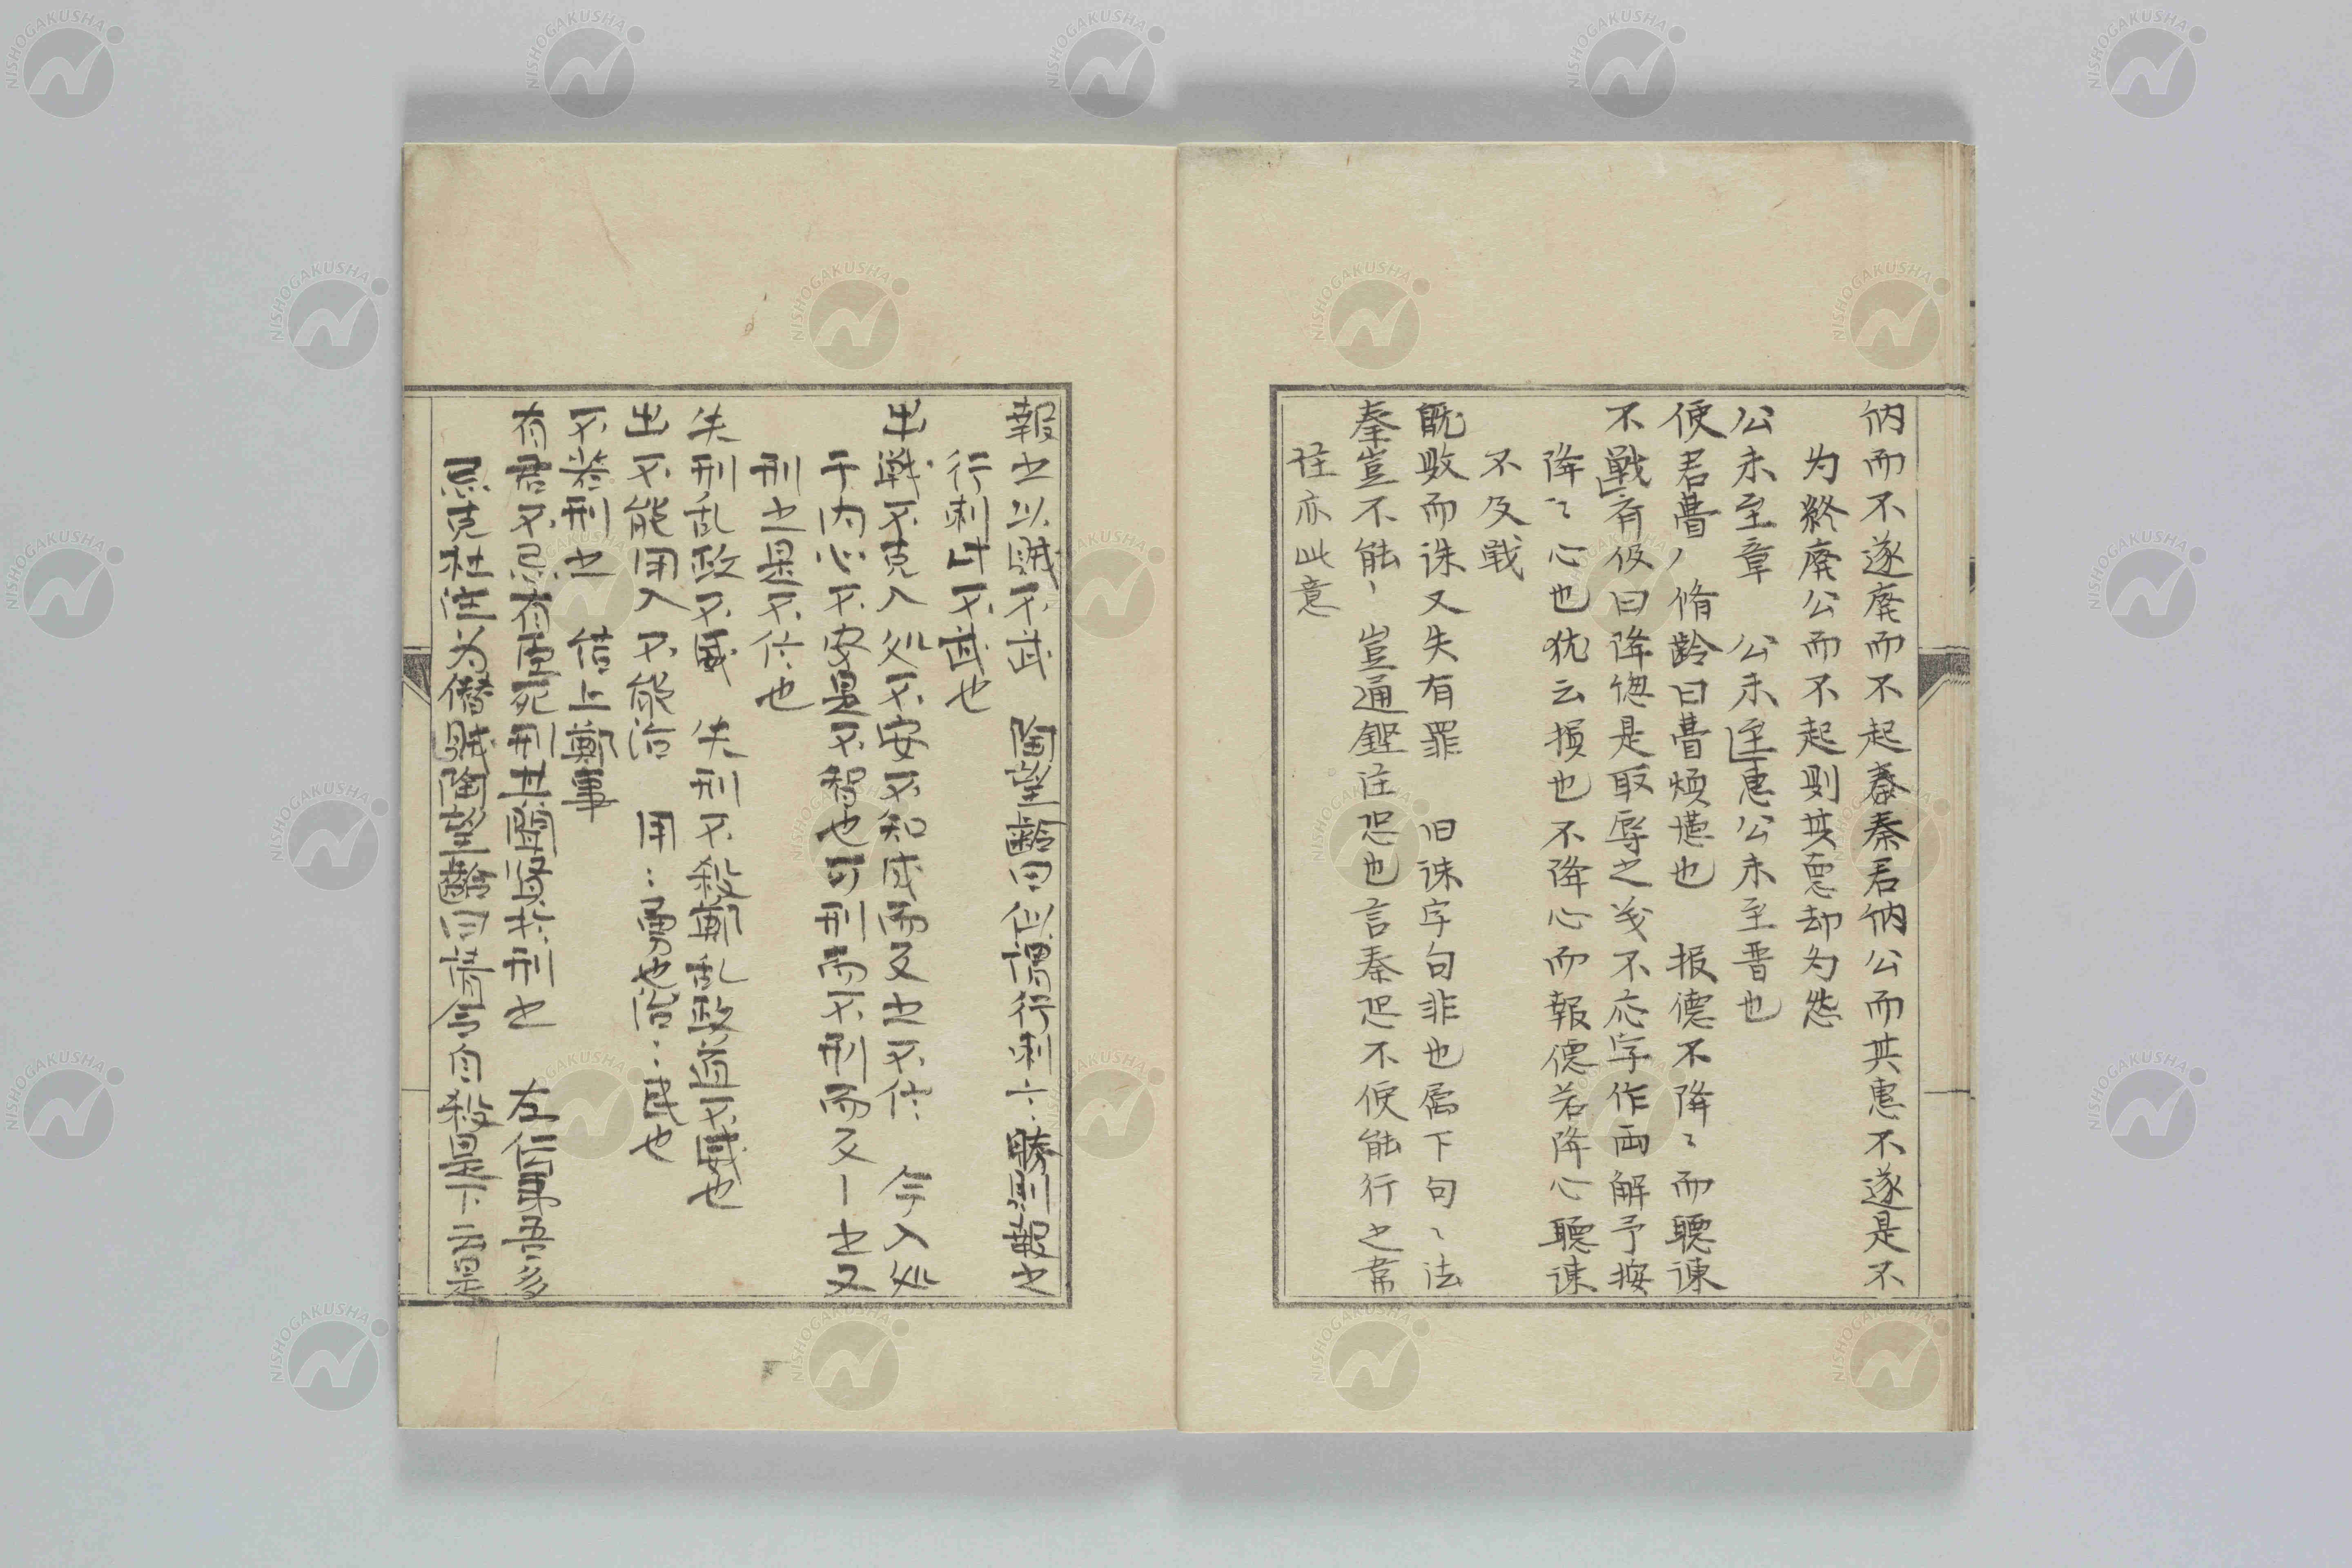 納而不遂廃而不起秦秦君納公而其恵不遂是不
为終廃公而不起則其恵却为怨
公未至章　公未至恵公未至晋也
使君瞢〻脩齢曰瞢煩懣也　报德不降〻而聽諌
不戦有伇曰降德是取辱之義不応字作両解予按
降〻心也犹云損也不降心而報德若降心聽諌
不及戦
既敗而诛又失有罪　旧诔字句非也属下句〻法
秦豈不能〻豈通鏗注恐也言秦恐不便能行之韋
注亦此意
報之以賊不武　陶望齡曰似謂行刺一勝則報之
行刺此不武也
出戦不克入処不安不知成而反之不信　今入処
于内心不安是不智也可刑而不刑而反｜之又
刑之是不信也
失刑乱政不威　失刑不殺鄭乱政道不威也
出不能用入不能治　用：勇也治：民也
不若刑之　倍上鄭事
有君不忌有臣死刑其聞賢於刑之　左伝事吾多
忌克杜注为僭賊陶望齡曰请令自殺是下云是